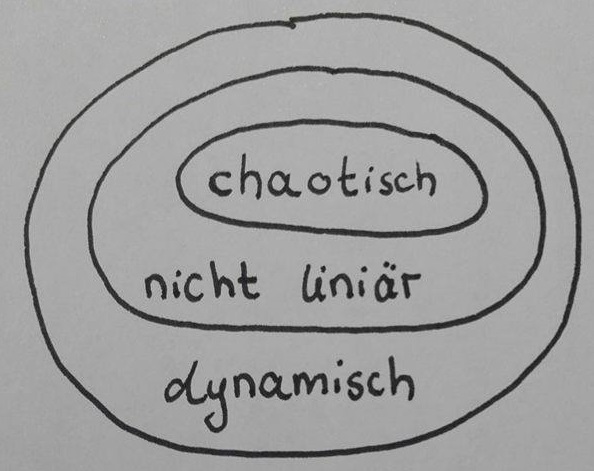 chaotisch
nicht liniär
dynamisch